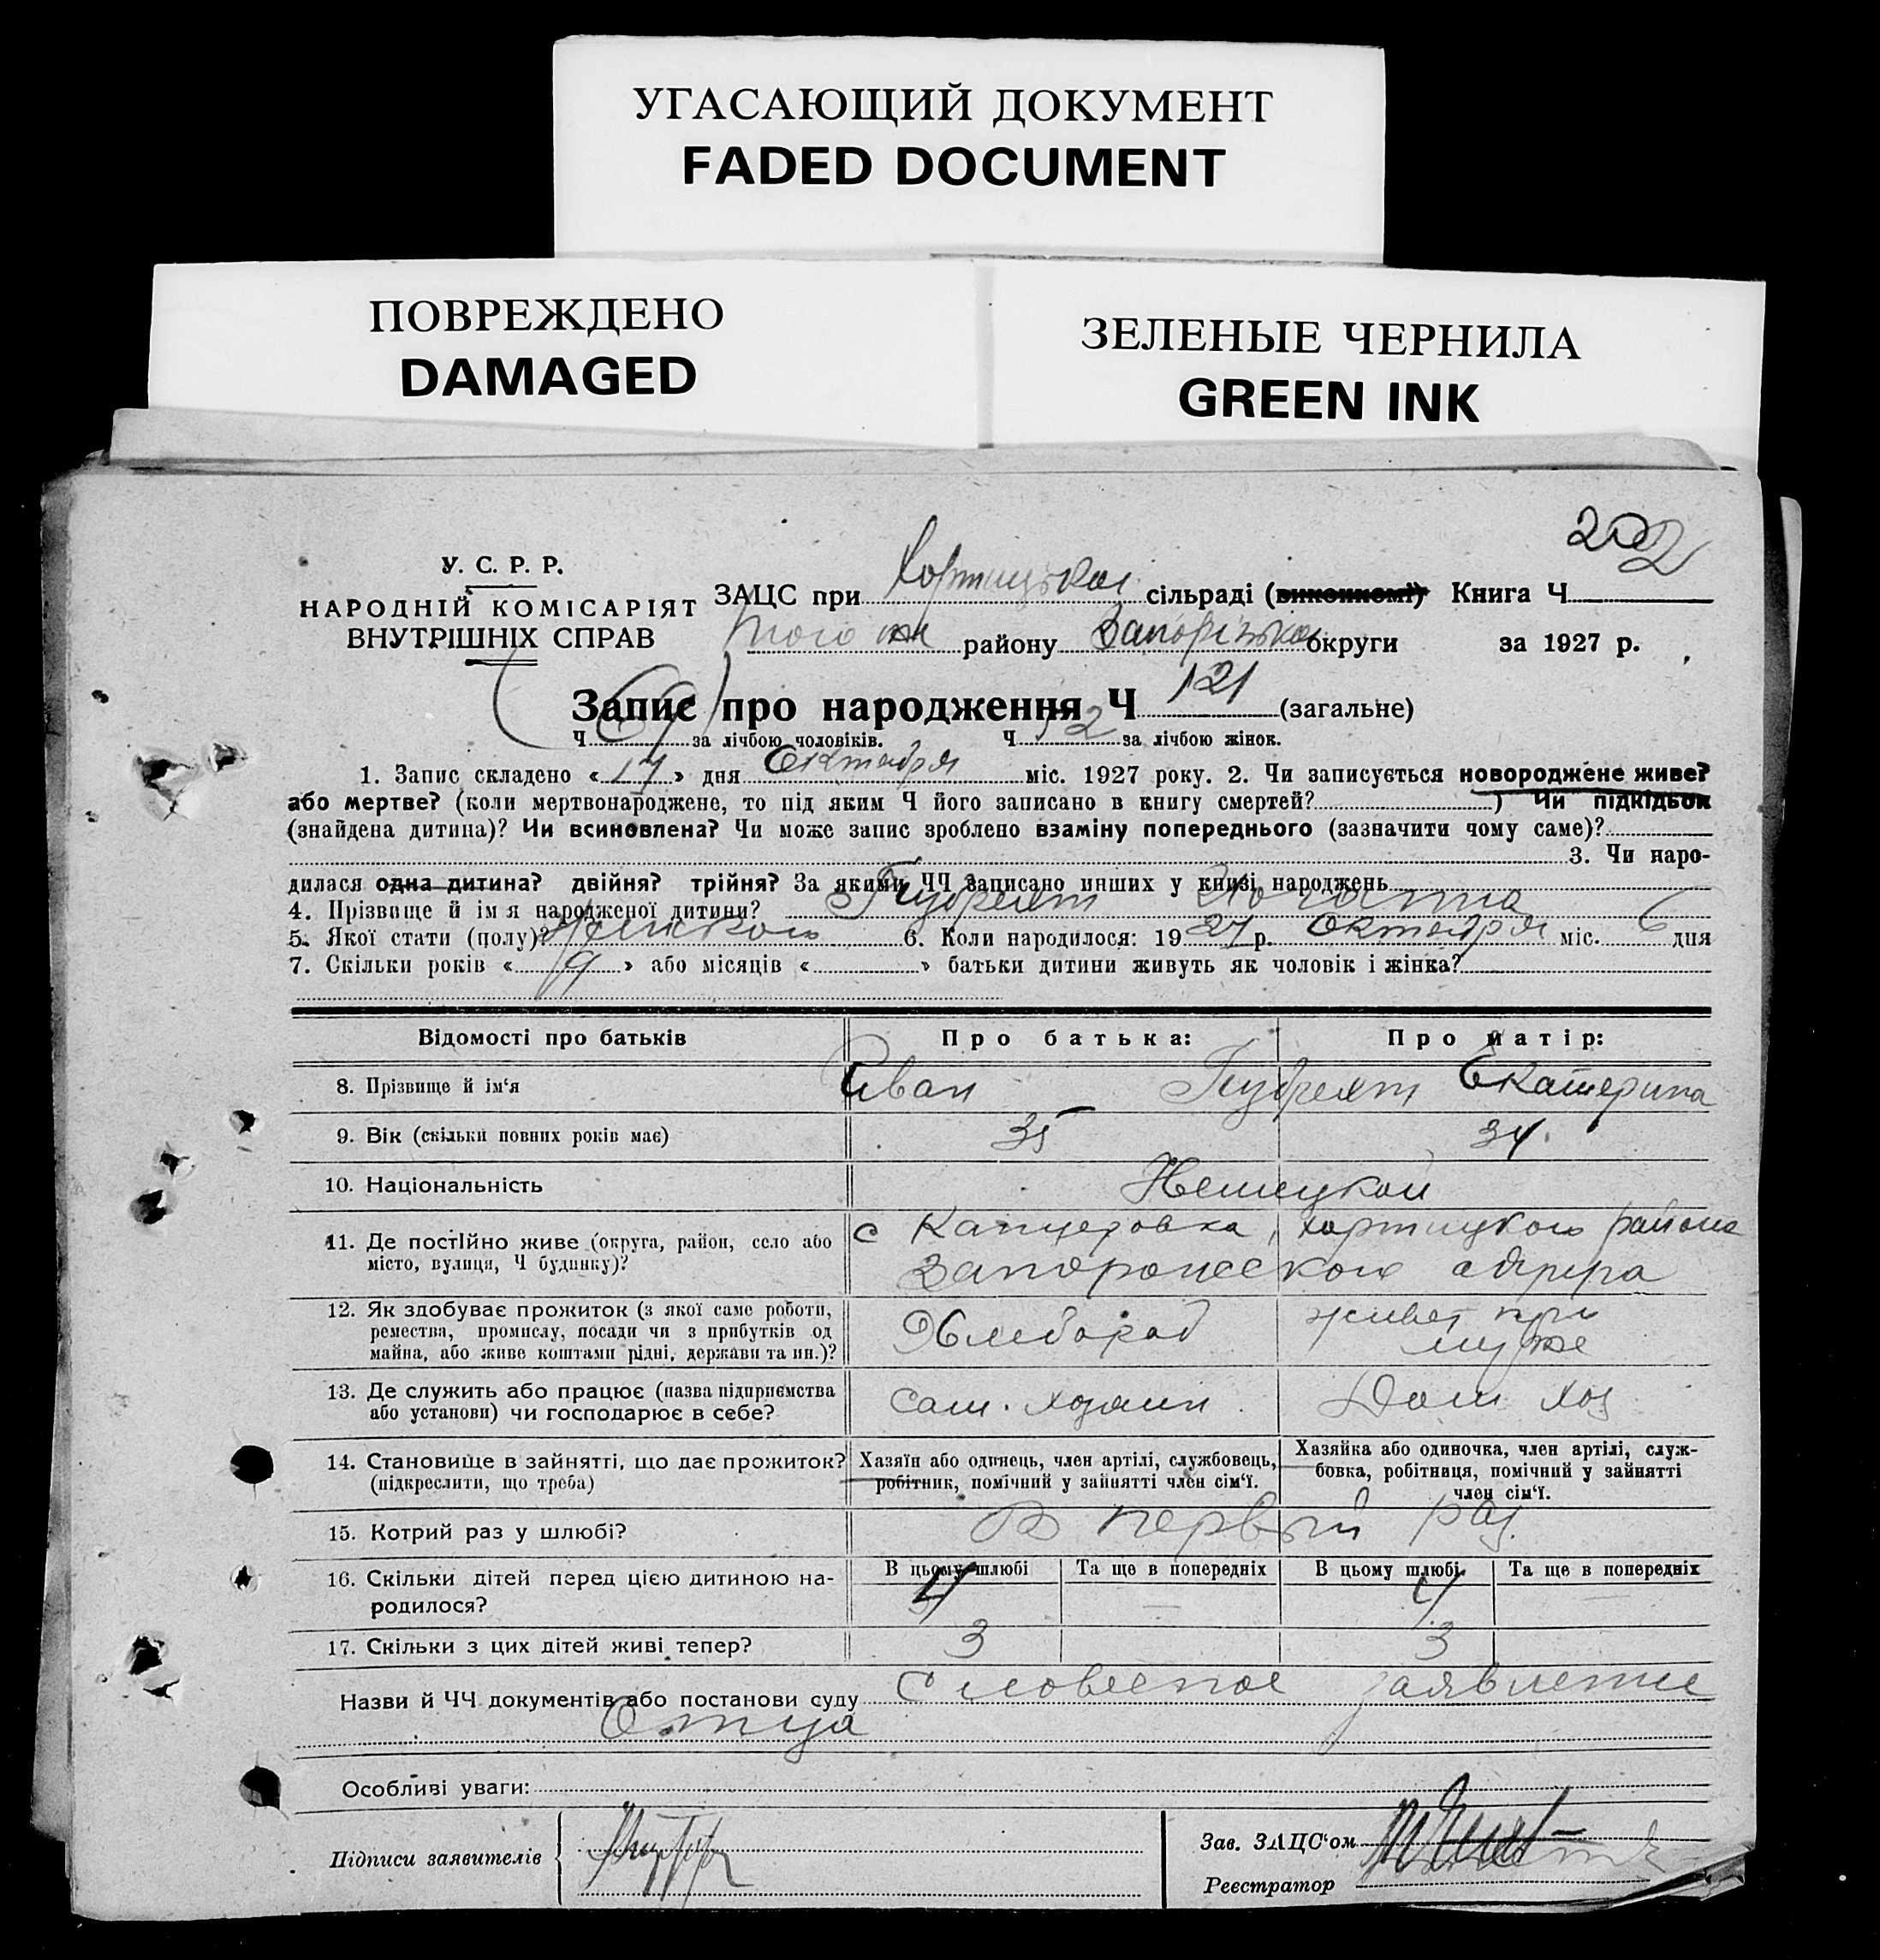 УГАСАЮЩИЙ ДОКУМЕНТ
FADED DOCUMENT
ПОВРЕЖДЕНО
DAMAGED
ЗЕЛЕНЫЕ ЧЕРНИЛА
GREEN INK
202
У. С. Р. Р.
НАРОДНІЙ КОМІСАРІЯТ
ВНУТРІШНІХ СПРАВ
ЗАЦС при Хортицькой сільраді (виконкомі) Книга Ч
того же району Запорізької округи за 1927 р.
Запис про народження Ч 121 (загальне)
Ч 69 за лічбою чоловіків. Ч 52 за лічбою жінок.
1. Запис складено « 17 » дня Октября міс. 1927 року. 2. Чи записується новороджене живе?
або мертве? (коли мертвонароджене, то під яким Ч його записано в книгу смертей? ) Чи підкідьок
(знайдена дитина)? Чи всиновлена? Чи може запис зроблено взаміну попереднього (зазначити чому саме)?
3. Чи наро-
дилася одна дитина? двійня? трійня? За якими ЧЧ записано инших у книзі народжень
4. Прізвище й ім'я народженої дитини?
5. Якої стати (полу)? Женского 6. Коли народилося: 19 27 р. Октября міс. 6 дня
7. Скільки років « 9 » або місяців « » батьки дитини живуть як чоловік і жінка?
Відомості про батьків Про батька: Про матір:
8. Прізвище й ім'я Иван Екатерина
9. Вік (скільки повних років має) 35 34
10. Національність Немецкой
11. Де постійно живе (округа, район, село або
місто, вулиця, Ч будинку)?
с Канцеровка, хортицкого района
Запорожского округа
12. Як здобуває прожиток (з якої саме роботи,
ремества, промислу, посади чи з прибутків од
майна, або живе коштами рідні, держави та ин.)?
Хлебороб
живет при
муже
13. Де служить або працює (назва підприємства
або установи) чи господарює в себе?
Сам. хозяин
Дом. хоз
14. Становище в зайнятті, що дає прожиток?
(підкреслити, що треба)
Хазяїн або одинець, член артілі, службовець,
робітник, помічний у зайнятті член сім'ї.
Хазяйка або одиночка, член артілі, служ-
бовка, робітниця, помічний у зайнятті
член сім'ї.
15. Котрий раз у шлюбі? В первый раз.
16. Скільки дітей перед цією дитиною на-
родилося?
В цьому шлюбі Та ще в попередніх В цьому шлюбі Та ще в попередніх
4 — 4 —
17. Скільки з цих дітей живі тепер? 3 3
Назви й ЧЧ документів або постанови суду Словесное заявление
Отца
Особливі уваги:
Підписи заявителів
Зав. ЗАЦС'ом
Реєстратор